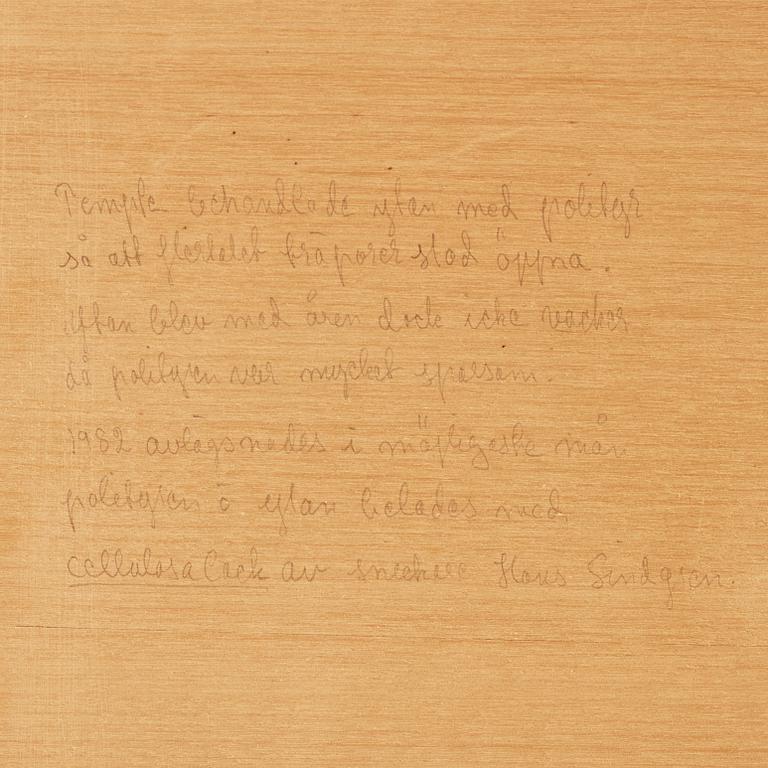 Temple behandlade ytan med polityr
så att flertalet träporer stod öppna.
Ytan blev med åren dock icke vacker
då polityren var mycket sparsam.
1982 avlägsnades i möjligaste mån
polityren o ytan belades med
cellulosalack av snickare Hans Lindgren.